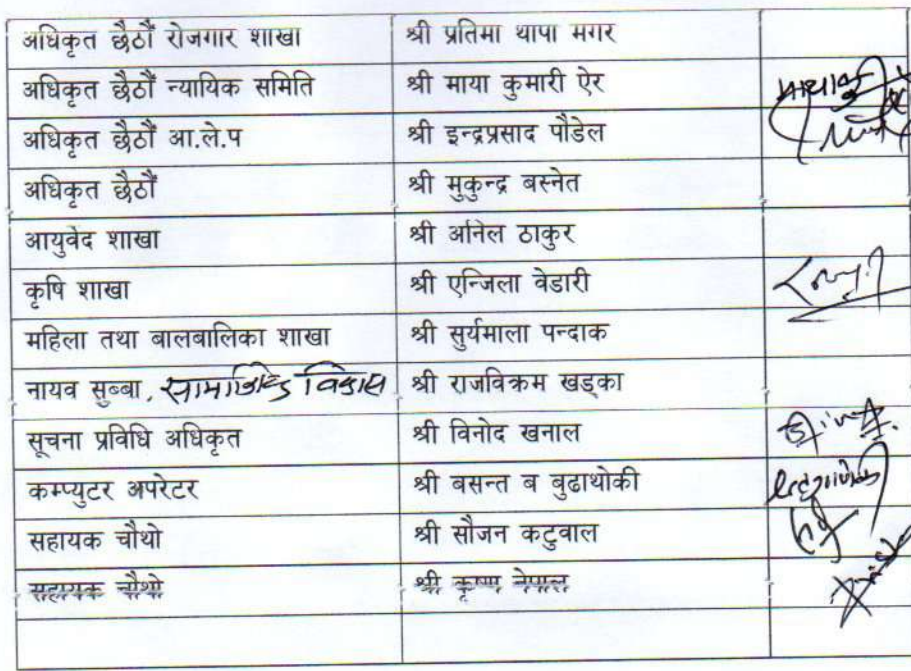 अधिकृत छैठौँ रोजगार शाखा श्री प्रतिमा थापा मगर
अधिकृत छैठौँ न्यायिक समिति श्री माया कुमारी ऐर
अधिकृत छैठौँ आ.ले.प श्री इन्द्रप्रसाद पौडेल
अधिकृत छैठौँ श्री मुकुन्द्र बस्नेत
आयुर्वेद शाखा श्री अनिल ठाकुर
कृषि शाखा श्री एन्जिला वेडारी
महिला तथा बालबालिका शाखा श्री सुर्यमाला पन्दाक
नायव सुब्बा, सामाजिक विकास श्री राजविक्रम खड्का
सूचना प्रविधि अधिकृत श्री विनोद खनाल
कम्प्युटर अपरेटर श्री बसन्त ब बुढाथोकी
सहायक चौथो श्री सौजन कटुवाल
सहायक चौथो श्री कृष्ण नेपाल